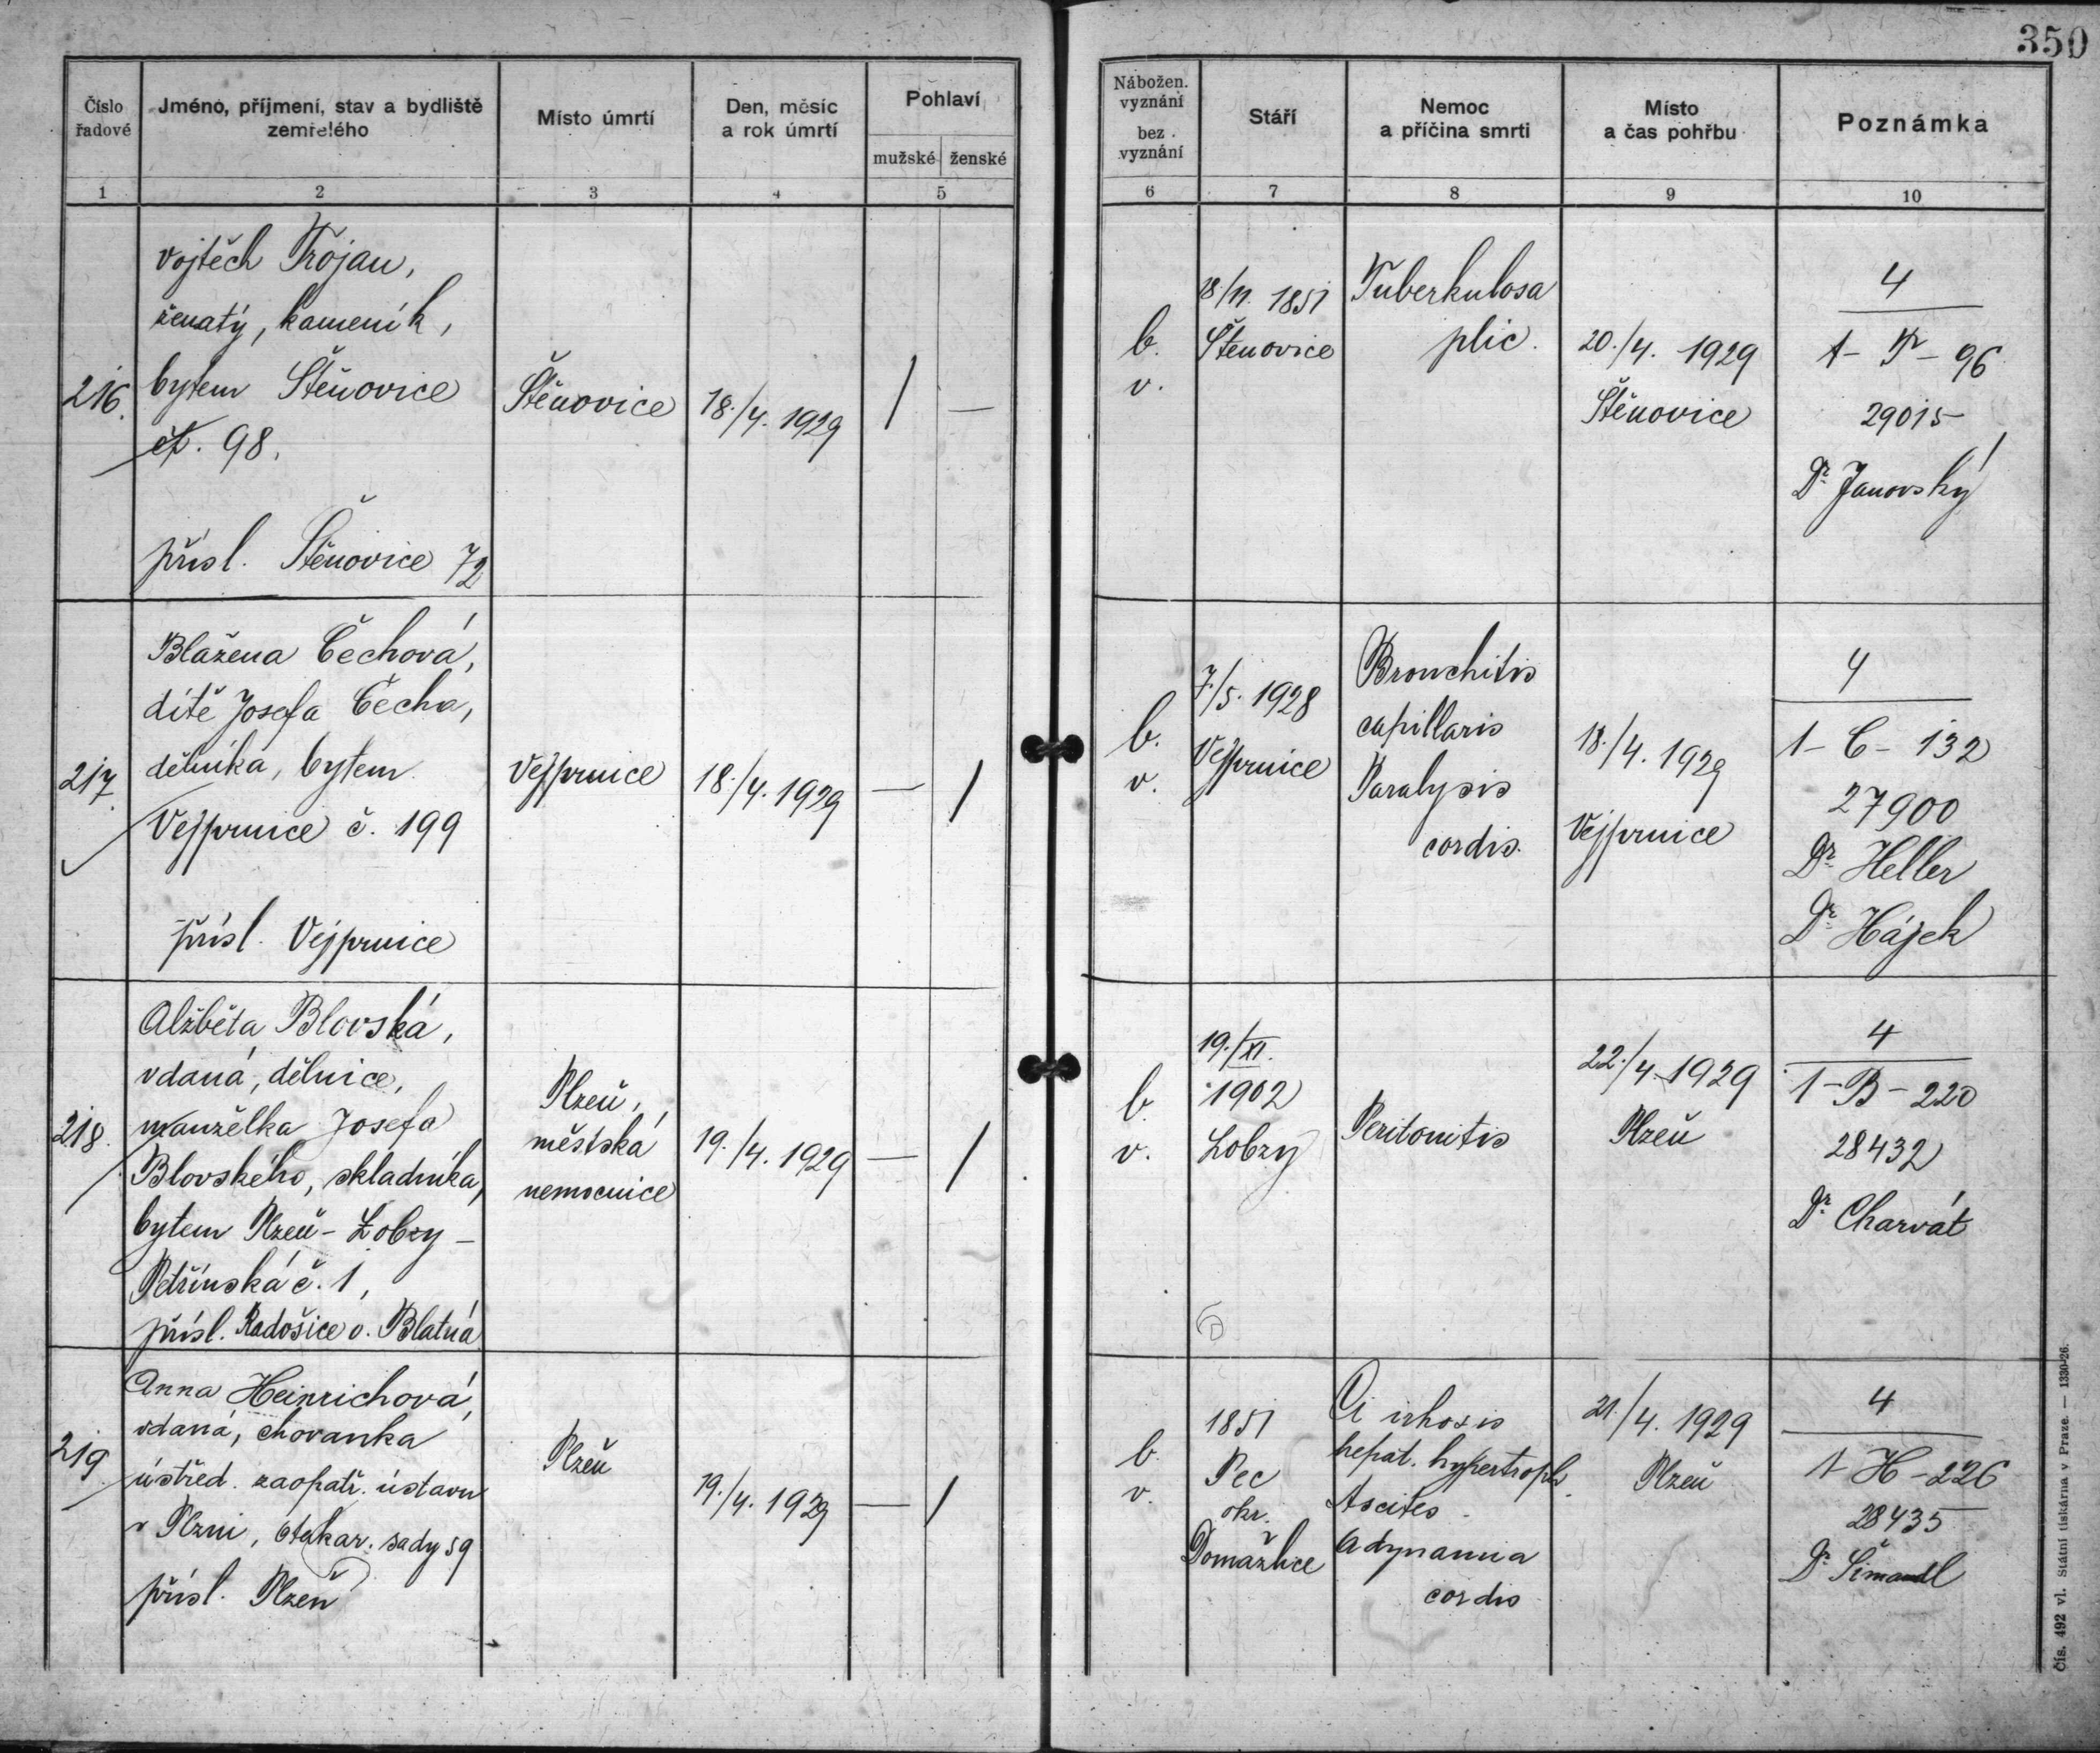 350
Číslo
řadové
Jméno, příjmení, stav a bydliště
zemřelého
Místo úmrtí
Den, měsíc
a rok úmrtí
Pohlaví
mužské ženské
Nábožen.
vyznání
bez
vyznání
Stáří
Nemoc
a příčina smrti
Místo
a čas pohřbu
Poznámka
1 2 3 4 5 6 7 8 9 10
216.
Vojtěch Trojan,
ženatý, kameník,
bytem Štěnovice
čp. 98.
přísl. Štěnovice 72
Štěnovice
18./4. 1929
/ —
b.
v.
18./11. 1851
Štěnovice
Tuberkulosa
plic.
20./4. 1929
Štěnovice
4
1 - Tr - 96
29015
Dr. Janovský
217.
Blažena Čechová,
dítě Josefa Čecha,
dělníka, bytem
Vejprnice č. 199
přísl. Vejprnice
Vejprnice
18./4. 1929
— /
b.
v.
7./5. 1928
Vejprnice
Bronchitis
capillaris
Paralysis
cordis.
18./4. 1929
Vejprnice
4
1 - C - 132
27900
Dr. Heller
Dr. Hájek
218.
Alžběta Blovská,
vdaná, dělnice,
manželka Josefa
Blovského, skladníka,
bytem Plzeň - Lobzy -
Petřínská č. 1,
přísl. Radošice o. Blatná
Plzeň,
městská
nemocnice
19./4. 1929
— /
b.
v.
19./XI.
1902
Lobzy
Peritonitis
22./4. 1929
Plzeň
4
1 - B - 220
28432
Dr. Charvát
219
Anna Heinrichová,
vdaná, chovanka
ústřed. zaopatř. ústavu
v Plzni, Otakar. sady 59
přísl. Plzeň
Plzeň
19./4. 1929
— /
b.
v.
1851
Pec
okr.
Domažlice
Ci irhosis
hepat. hypertroph.
Ascites
Adynamia
cordis
21./4. 1929
Plzeň
4
1 - H - 226
28435
Dr. Šimandl
Čís. 492 vl. Státní tiskárna v Praze. — 1330-26.